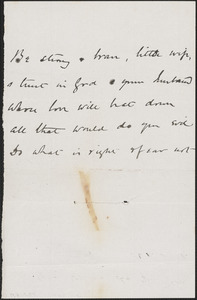 Be strong & brave, little wife,
& trust in God & your Husband
whose love will beat down
all that would do you evil
Do what is right & fear not